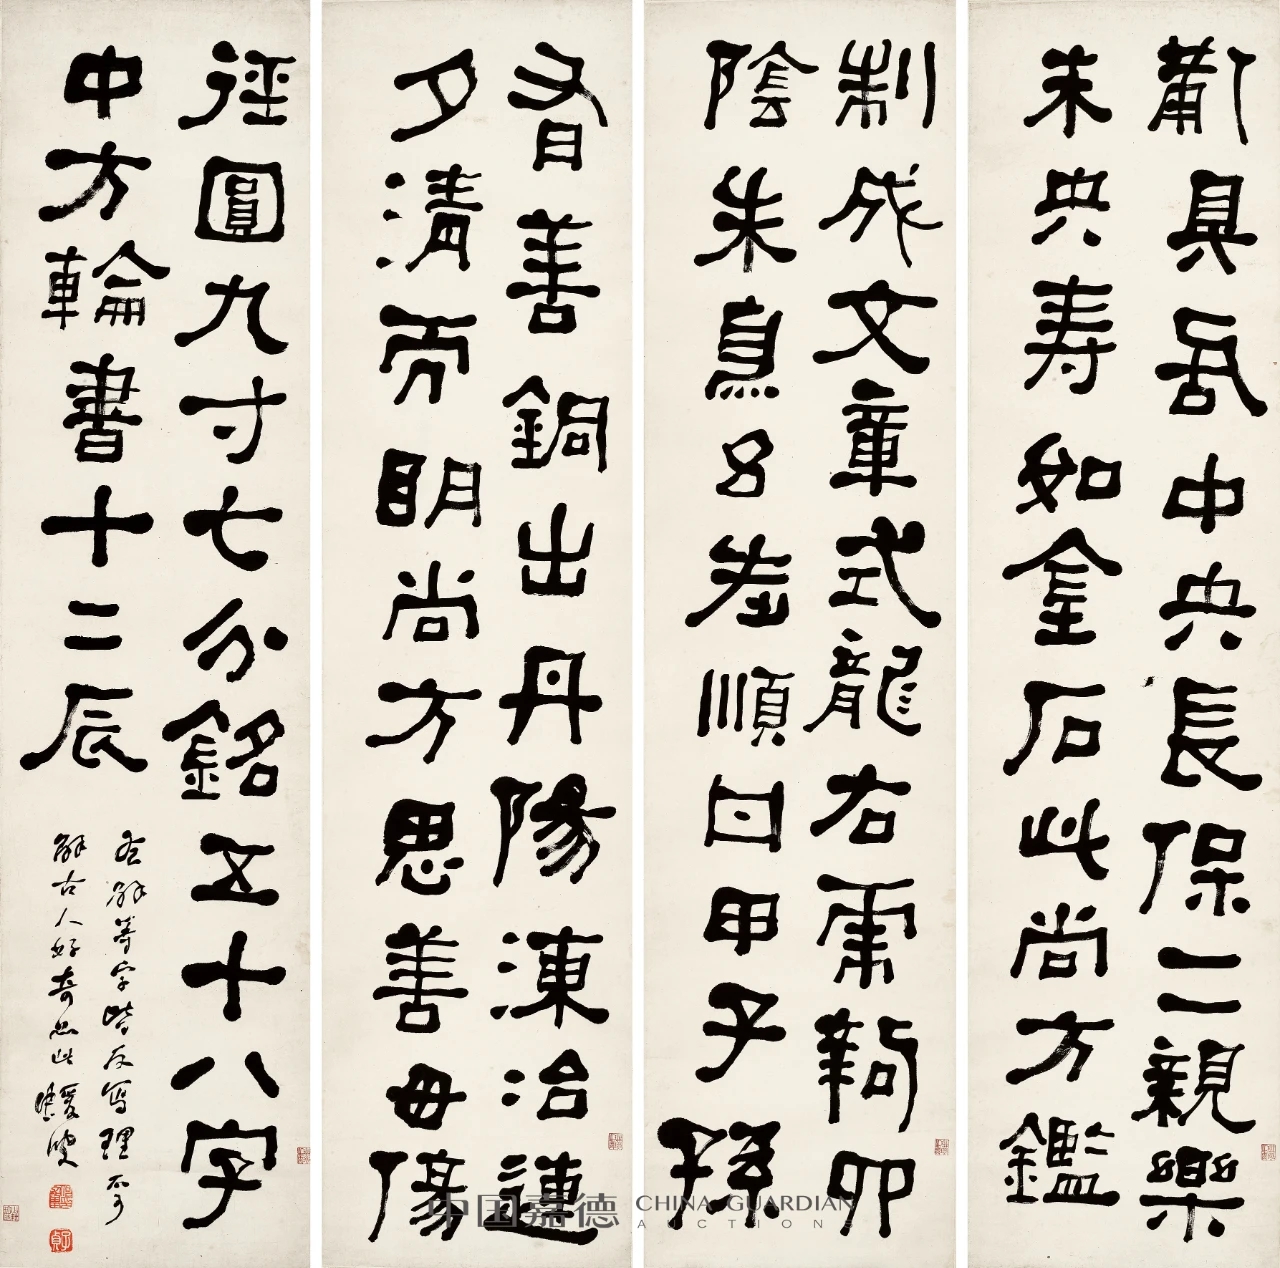 具中央長保二親樂
未央壽如金石此尚方鑑
制成文章式龍右卯
陰朱鳥呂差順曰甲子孫
有善銅出丹陽湅治連
夕清而明尚方思善毋傷
徑圓九寸七分銘五十八字
中方輪書十二辰
等字皆反寫理不可
解古人好奇如此 蝯叟
中国嘉德 CHINA GUARDIAN
AUCTIONS